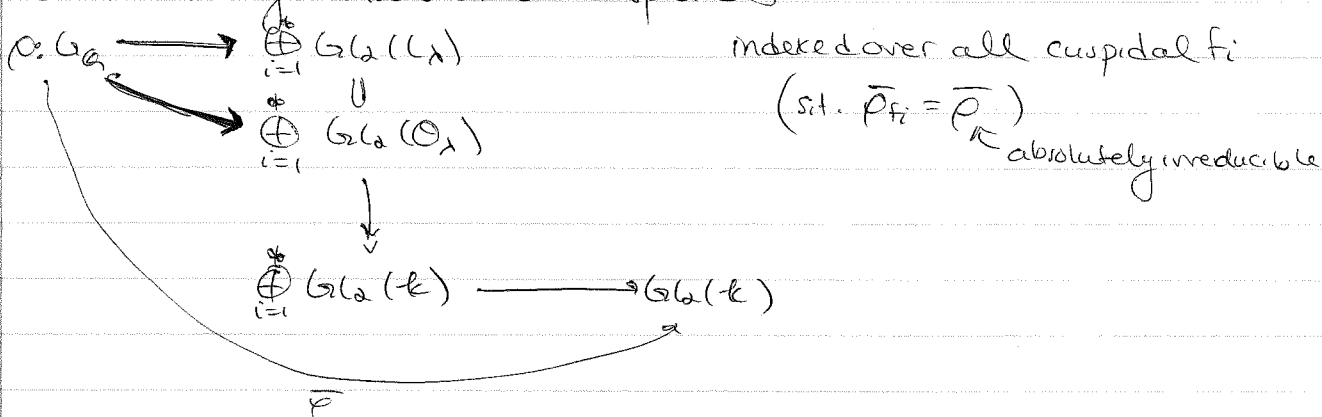 ρ: G_Q → ⊕_{i=1}^{*} GL₂(L_λ) indexed over all cuspidal fi
∪ (s.t. ρ̄_{fi} = ρ̄)
⊕_{i=1}^{*} GL₂(O_λ) absolutely irreducible
⊕_{i=1}^{*} GL₂(k) → GL₂(k)
ρ̄